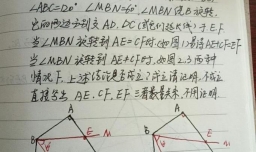 ∠ABC=120° ∠MBN=60°, ∠MBN绕B旋转
它的两边分别交AD、DC(或它们延长线)于E F
当∠MBN旋转到AE=CF时(如图1)易证AE+CF=EF
当∠MBN旋转到AE≠CF时,如图2、3两种
情况下,上述结论是否成立?成立请证明,不成立
直接写出AE、CF、EF三者数量关系,不用证明
A
A
B
E
M
B
E